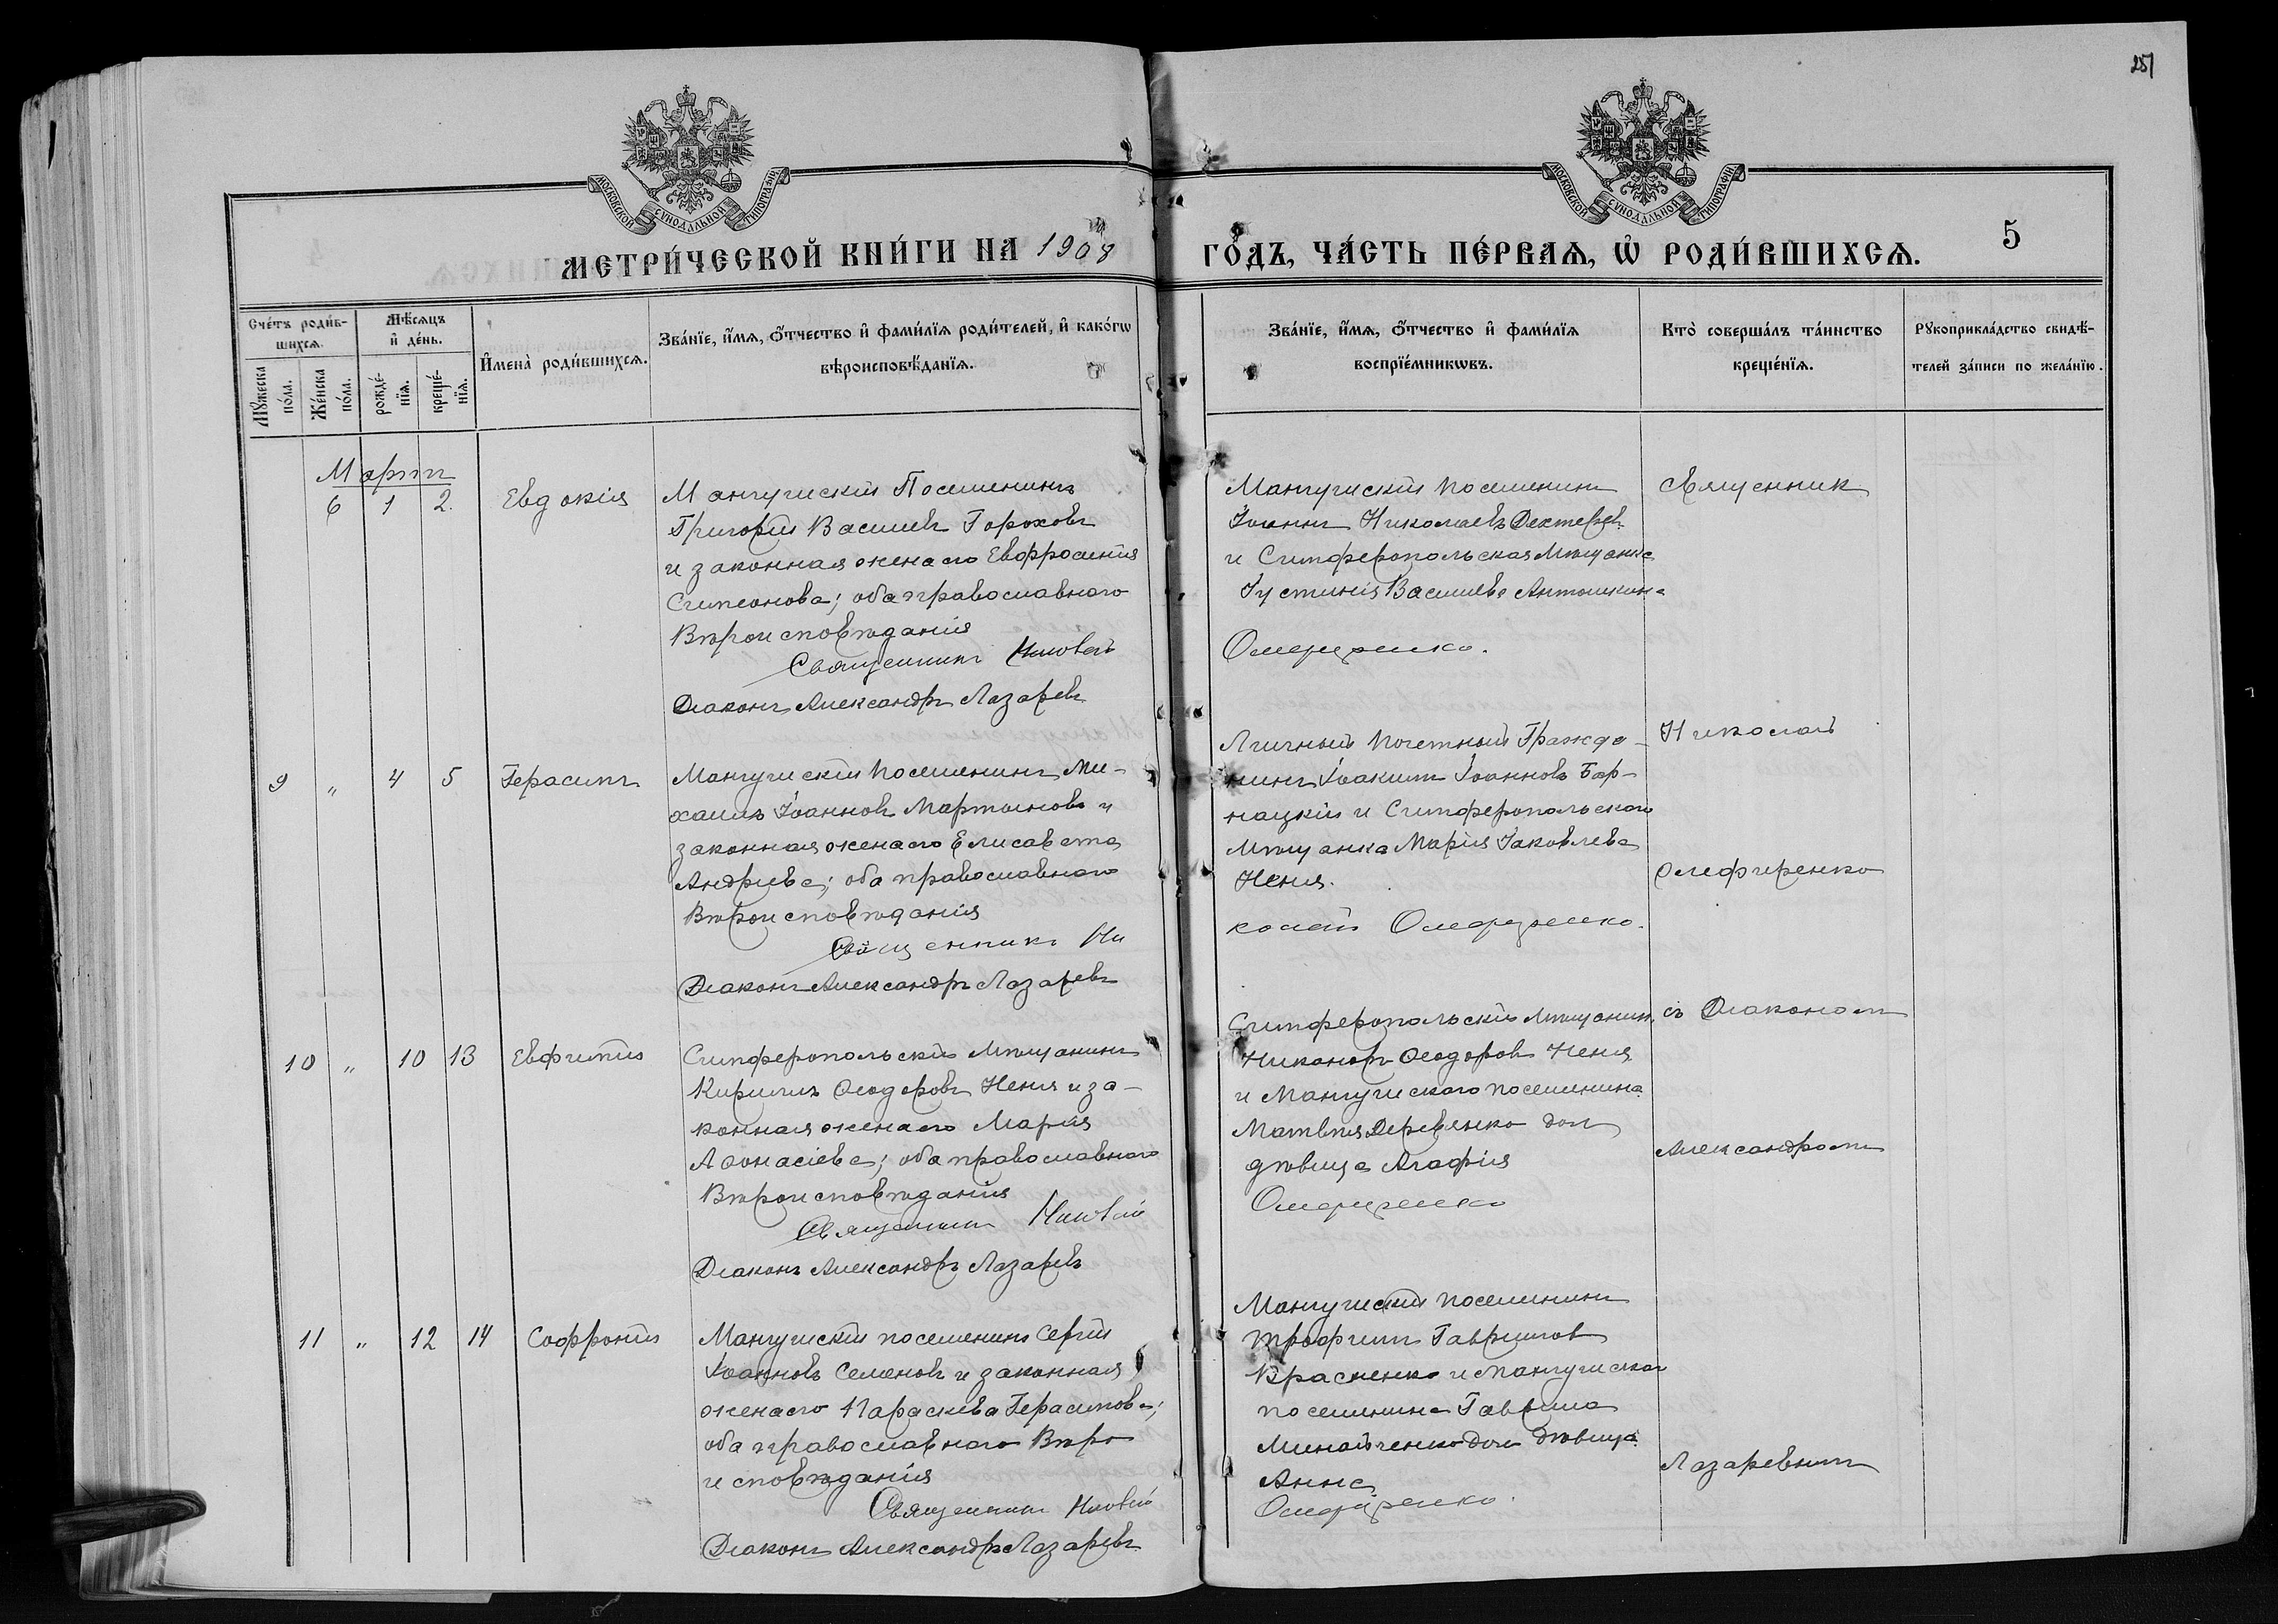 251
МОСКОВСКОЙ СѴНОДАЛЬНОЙ ТИПОГРАФІИ
МОСКОВСКОЙ СѴНОДАЛЬНОЙ ТИПОГРАФІИ
МЕТРИ́ЧЕСКОЙ КНИ́ГИ НА 1908
ГО́ДЪ, ЧА́СТЬ ПЕ́РВАѦ, Ѡ҆ РОДИ́ВШИХСѦ.
5
Сче́тъ роди́в-
шихсѧ.
Мꙋ́жеска по́ла.
Же́нска по́ла.
Мѣ́сѧцъ
и҆ де́нь.
рожде́-
нїѧ.
креще́-
нїѧ.
И҆мена̀ роди́вшихсѧ.
Зва́нїе, и҆́мѧ, ѻ҆́тчество и҆ фами́лїѧ роди́телей, и҆ како́гѡ
вѣроисповѣ́данїѧ.
Зва́нїе, и҆́мѧ, ѻ҆́тчество и҆ фами́лїѧ
воспрїе́мникѡвъ.
Кто̀ соверша́лъ та́инство
креще́нїѧ.
Рꙋкоприкла́дство свидѣ́-
телей за́писи по жела́нїю.
Мартъ
6 1 2.
Евдокія
Мангушскій Поселенинъ
Григорій Васильевъ Гороховъ
и законная жена его Евфросинія
Симеонова; оба православнаго
Вѣроисповѣданія
Священникъ Николай
Діаконъ Александръ Лазаревъ
Мангушскій поселенинъ
Іоаннъ Николаевъ Дехтеревъ
и Симферопольская Мѣщанка
Іустинія Васильева Антошкина
Олефиренко.
Священник
9 „ 4 5
Герасимъ
Мангушскій поселенинъ Ми-
хаилъ Іоанновъ Мартыновъ и
законная жена его Елисавета
Андреева; оба православнаго
Вѣроисповѣданія
Священникъ Ни
Діаконъ Александръ Лазаревъ
Личный почетный Гражда-
нинъ Іоакимъ Іоанновъ Бар-
нацкій и Симферопольскаго
Мѣщанка Марія Іаковлева
Неня.
колай Олефиренко.
Николай
Олефиренко
10 „ 10 13
Евфимій
Симферопольскій Мѣщанинъ
Кириллъ Ѳеодоровъ Неня и за-
конная жена его Марія
Аѳонасіева; оба православнаго
Вѣроисповѣданія
Священникъ Николай
Діаконъ Александръ Лазаревъ
Симферопольскій Мѣщанин.
Никаноръ Ѳеодоровъ Неня
и Мангушскаго поселенина
Матвѣя Деревянко доч
дѣвица Агафія
Олефиренко
съ Діаконом
Александром
11 „ 12 14
Софроній
Мангушскій поселенинъ Сергій
Іоанновъ Семеновъ и законная
жена его Параскева Герасимова;
оба православнаго Вѣро
исповѣданія
Священникъ Николай
Діаконъ Александръ Лазаревъ
Мангушскій поселенинъ
Трофимъ Гавриилов
Красненко и Мангушскаг
поселенина Гавриила
Минайченко доч дѣвица
Анна
Олефиренко.
Лазаревымъ